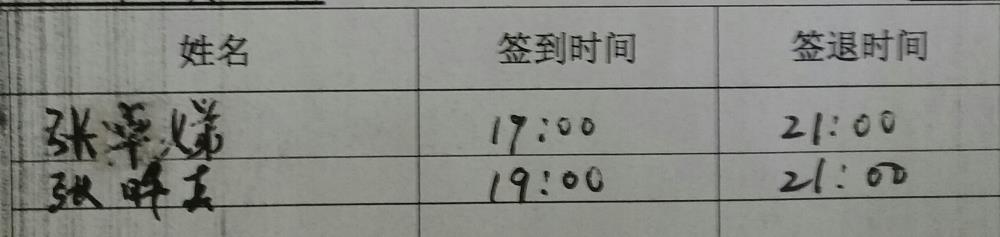 姓名 签到时间 签退时间
张 17:00 21:00
张 19:00 21:00